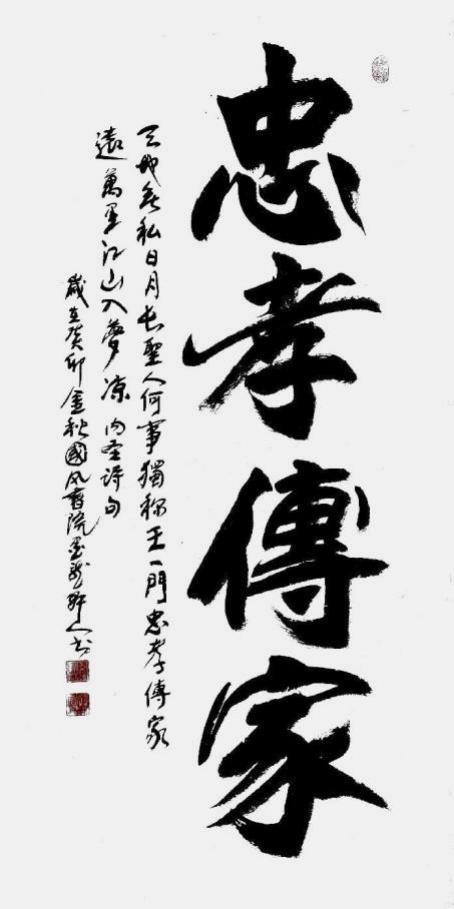 忠孝傳家
天地無私日月長聖人何事獨稱王一門忠孝傳家
遠萬里江山入夢凉 内圣詩句
歲在癸卯金秋國風書院墨龍軒人书